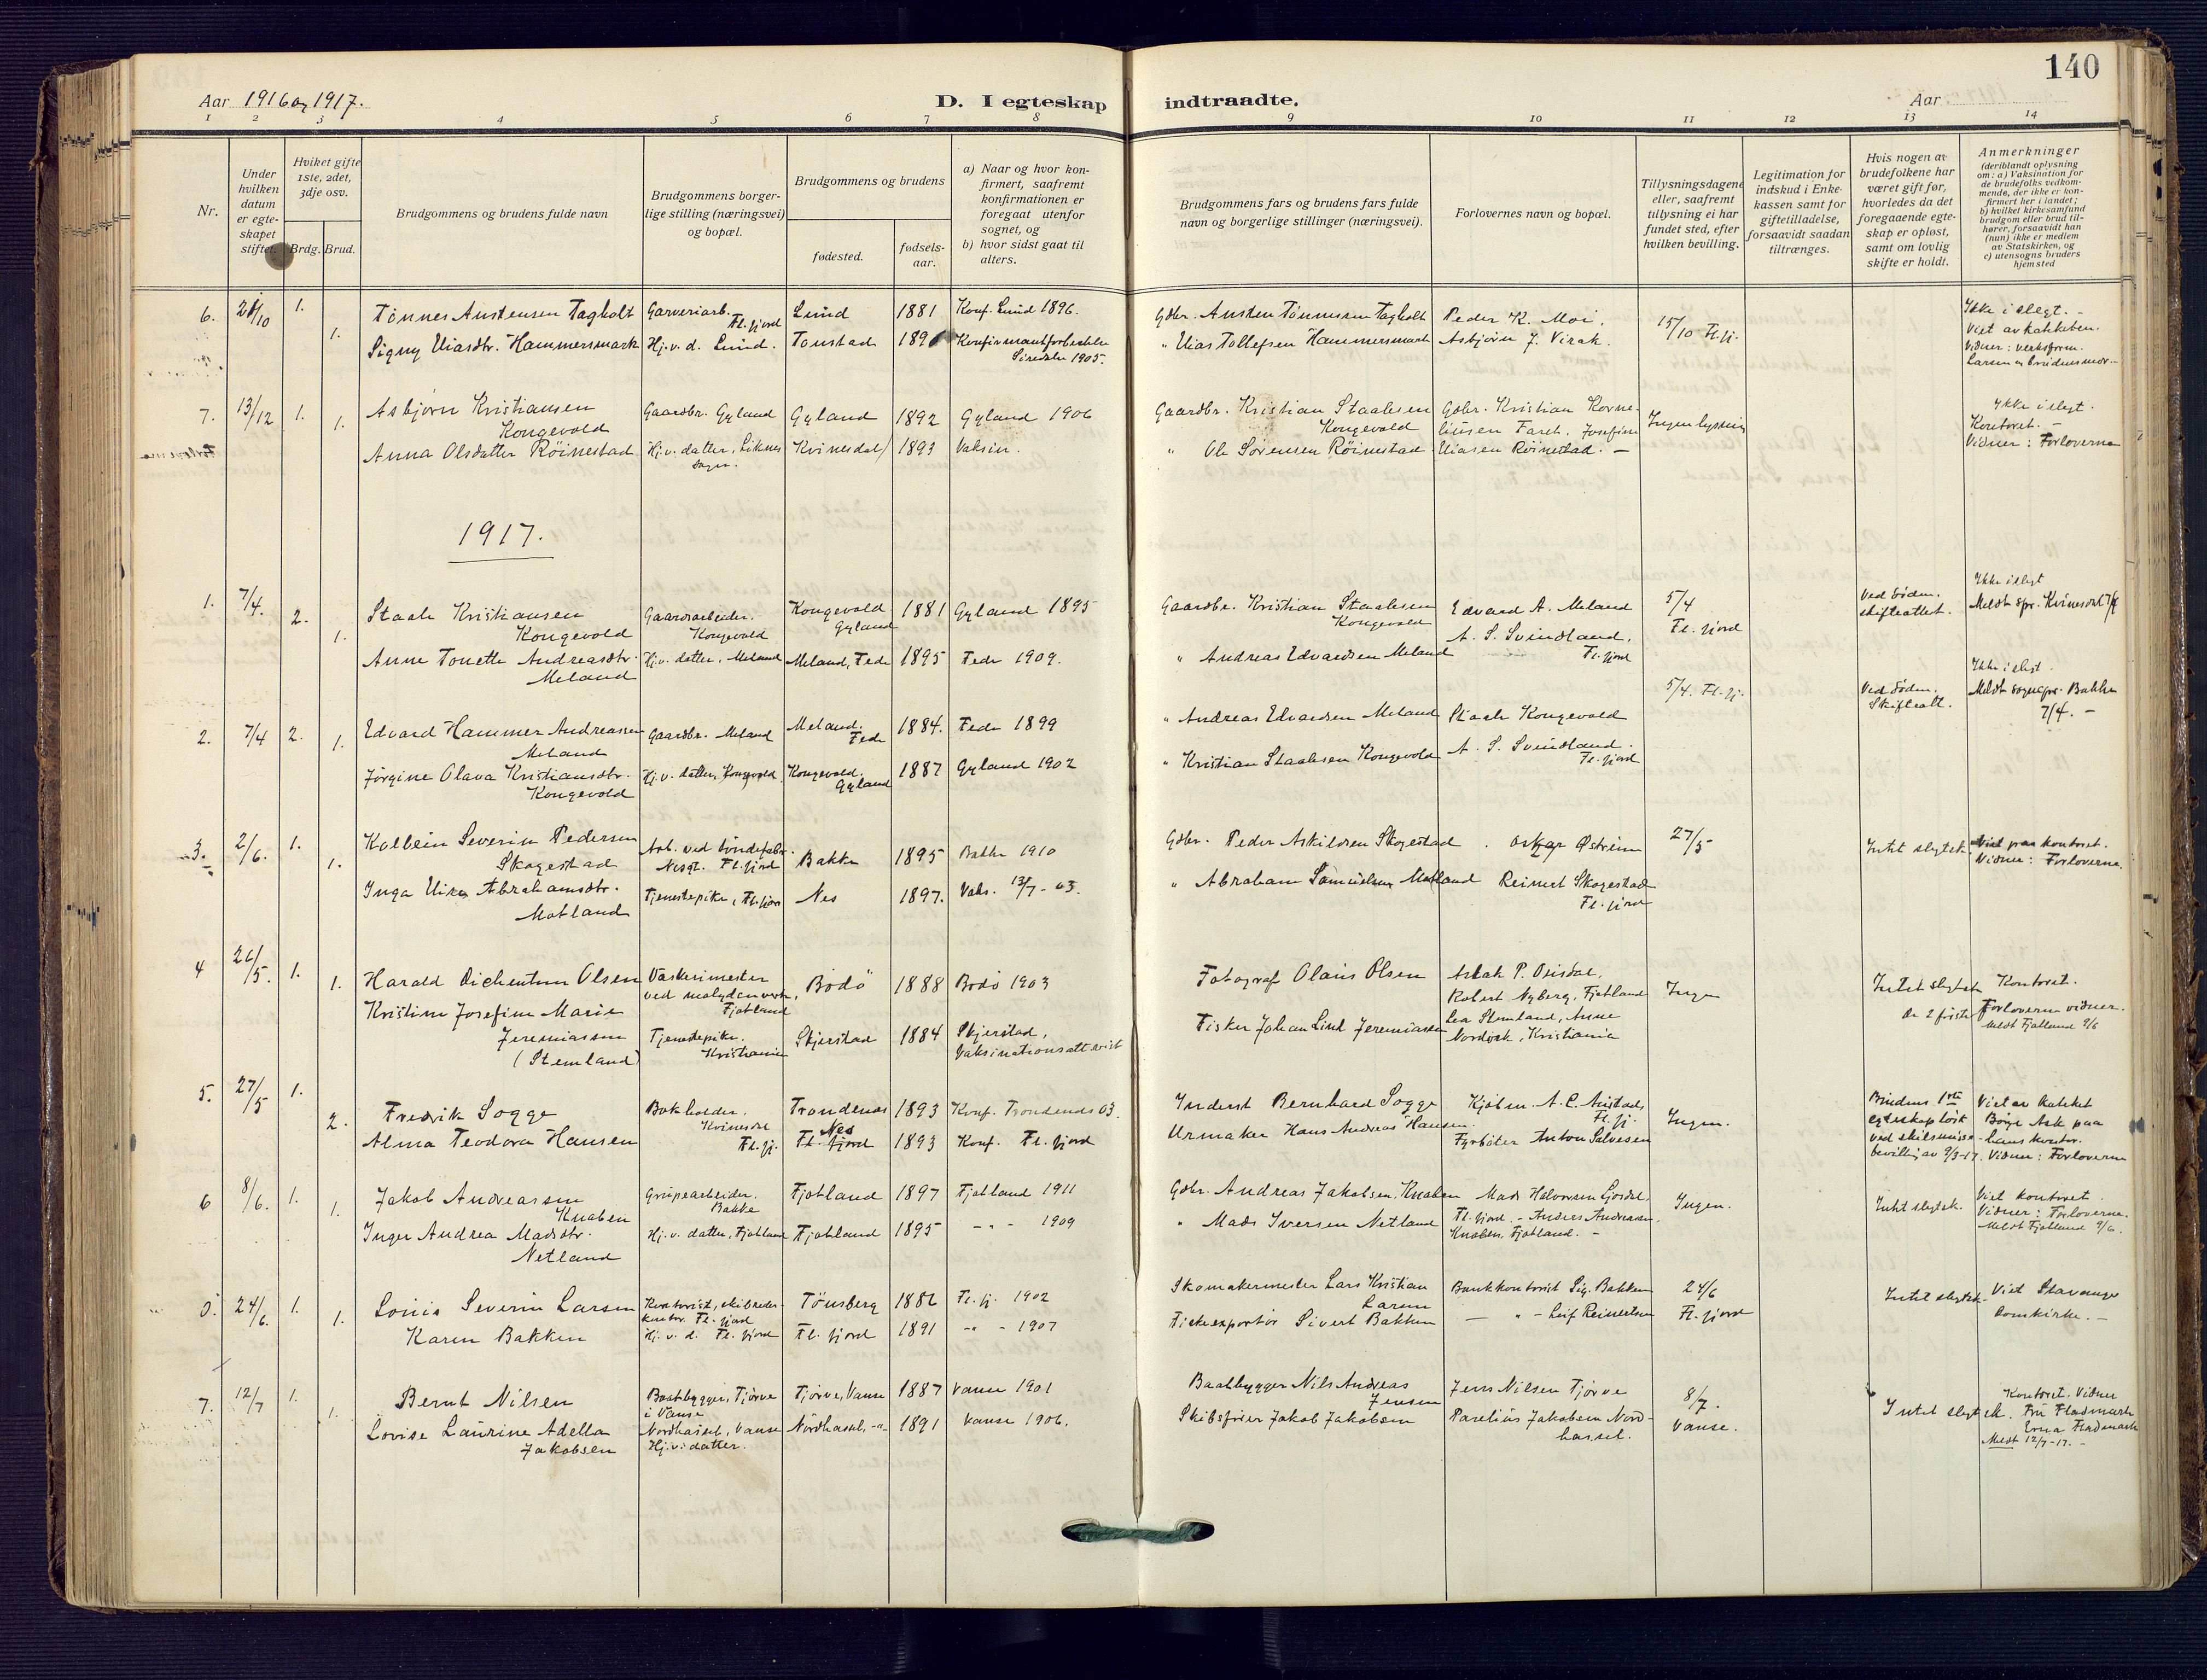 140
Aar 1916 og 1917.
D. I egteskap indtraadte.
Aar
1 2 3 4 5 6 7 8 9 10 11 12 13 14
Nr.
Under hvilken datum er egteskapet stiftet.
Hviket gifte 1ste, 2det, 3dje osv.
Brdg. Brud.
Brudgommens og brudens fulde navn
Brudgommens borgerlige stilling (næringsvei) og bopæl.
Brudgommens og brudens
fødested.
fødselsaar.
a) Naar og hvor konfirmert, saafremt konfirmationen er foregaat utenfor sognet, og
b) hvor sidst gaat til alters.
Brudgommens fars og brudens fars fulde navn og borgerlige stillinger (næringsvei).
Forlovernes navn og bopæl.
Tillysningsdagene eller, saafremt tillysning ei har fundet sted, efter hvilken bevilling.
Legitimation for indskud i Enkekassen samt for giftetilladelse, forsaavidt saadan tiltrænges.
Hvis nogen av brudefolkene har været gift før, hvorledes da det foregaaende egteskap er opløst, samt om lovlig skifte er holdt.
Anmerkninger
(deriblandt oplysning om: a) Vaksination for de brudefolks vedkommende, der ikke er konfirmert her i landet; b) hvilket kirkesamfund brudgom eller brud tilhører, forsaavidt han (hun) ikke er medlem av Statskirken, og c) utensogns bruders hjemsted
6. 1. Tönnes Austensen Tagholt Garveriarb. Fl.fjord Lund 1881 Konf. Lund 1896. Gdbr. Austen Tönnesen Tagholt Peder K. Moi. 15/10 Fl.fj. Ikke i slegt. -
1. Signy Uiasdtr. Hammersmark Hj.v.d. Lund. Tonstad Siredalen 1905. " Uias Tollefsen Hammersmark Asbjörn J. Virak. Viet av Vidner: verksform. Larsen og brudens mor. -
7. 13/12 1. 1. Asbjørn Kristiansen Kongevold Gaardbr. Gyland Gyland 1892 Gyland 1906 Gaardbr. Kristian Staalesen Kongevold Gdbr. Kristian Korneliusen Faret. Josefine Ingen lysning Ikke i slegt.
Anna Olsdatter Röinestad Hj.v. datter, Liknes sogn. Kvinesdal 1893 Vaksin. " Ole Sörensen Röinestad Uiasen Röinestad. - Kontoret. - Vidner: Forloverne
1917.
1. 7/4. 2. 1. Staale Kristiansen Kongevold Gaardarbeider. Kongevold Kongevold Gyland 1881 Gyland 1895 Gaardbr. Kristian Staalesen Kongevold Edvard A. Meland 5/4 Fl.fjord Ved döden. skifteattest. Ikke i slegt
Anne Tonette Andreasdtr. Meland Hj.v. datter, Meland Meland, Feda 1895 Feda 1909. " Andreas Edvardsen Meland A. S. Svindland, Fl.fjord Meldt spr. Kvinesdal 7/4
2. 7/4 2. 1. Edvard Hammer Andreassen Meland Gaardbr. Meland Meland. Feda 1884. Feda 1899 " Andreas Edvardsen Meland Staale Kongevold 5/4. Fl.fj. Ved döden. Skifteatt. Ikke i slegt.
Jörgine Olava Kristiansdtr. Kongevold Hj.v. datter, Kongevold Kongevold. Gyland 1887 Gyland 1902 " Kristian Staalesen Kongevold A. S. Svindland. Fl.fjord Meldt sognepr. Bakke 7/4. -
3. 2/6. 1. 1. Kolbein Severin Pedersen Skogestad Arb. ved töndefabr. Fl.fjord Bakke 1895 Bakke 1910 Gdbr. Peder Askildsen Skogestad Oskar Østreim 27/5 Intet slegtsk. Viet paa kontoret. Vidner: Forloverne.
Inga Abrahamsdtr. Motland Tjenestepike, Fl.fjord Nes 1897. Vaks. 13/7-03. " Abraham Samuelsen Motland Reinert Skogestad Fl.fjord
4 26/5. 1. 1. Harald Olsen Vaskerimester ved molydenverk, Fjotland Bodö 1888 Bodö 1903 Fotograf Olaus Olsen Aslak P. Ousdal. Robert Nyberg, Fjotland Ingen Intet slegtsk. Kontoret.
Kristine Josefine Marie Jeremiassen (Stemland) Tjenestepike. Kristiania Skjerstad 1884 Skjerstad, Vaksinationsattest Fisker Johan Lind Jeremiassen Lea Stemland, Anne Nordvik, Kristiania De 2 første Forlovere vidner. Meldt Fjotland 9/6
5. 27/5 1. 2. Fredrik Sogge Bokholder. Kvinesdal Trondenes 1893 Konf. Trondenes 03. Inderst Bernhard Sogge Kjøbm. A. C. Austad, Fl.fj. Ingen. Brudens 1ste egteskap löst ved skilsmissebevilling av 9/3-17. Viet av Börge Ask paa hans kontor. Vidner: Forloverne
Alma Teodora Hansen Fl.fj. Nes Fl.fjord 1893 Konf. Fl.fjord Urmaker Hans Andreas Hansen. Fyrböter Anton Salvesen
6 8/6. 1. 1. Jakob Andreassen Knaben Grupearbeider. Bakke Fjotland 1897 Fjotland 1911 Gdbr. Andreas Jakobsen, Knaben Mads Halvorsen Fl.fjord. - Anders Andreassen, Ingen. Intet slegtsk. Viet kontoret. Vidner: Forloverne.
Inger Andrea Madsdtr. Netland Hj.v. datter, Fjotland Fjotland 1895 - " - 1909 " Mads Iversen Netland Knaben, Fjotland. - Meldt Fjotland 9/6.
0. 24/6. 1. 1. Louis Severin Larsen Kontorist, skibsrederkontor. Fl.fjord Tönsberg Fl.fj. 1902 Skomakermester Lars Kristian Larsen Bankkontorist Sig. Bakken 24/6 Fl.fjord Intet slegtsk. Viet Stavanger Domkirke. -
Karen Bakken Hj.v.d. Fl.fjord Fl.fjord 1891 - " - 1907 Fiskeexportör Sivert Bakken - " - Leif Reinertsen
7. 12/7 1. 1. Bernt Nilsen Baatbygger, Tjörve i Vanse Tjörve, Vanse 1887 Vanse 1901 Baatbygger Nils Andreas Jensen Jens Nilsen Tjörve 8/7. Vanse. Intet slegtsk. Kontoret. Vidner Fru Fladmark
Lovise Laurine Adella Jakobsen Nordhassel, Vanse Hj.v. datter. Nordhassel, -"- 1891 Vanse 1906. Skibsfører Jakob Jakobsen Parelius Jakobsen Nordhassel. Erna Fladmark Meldt 12/7-17. -